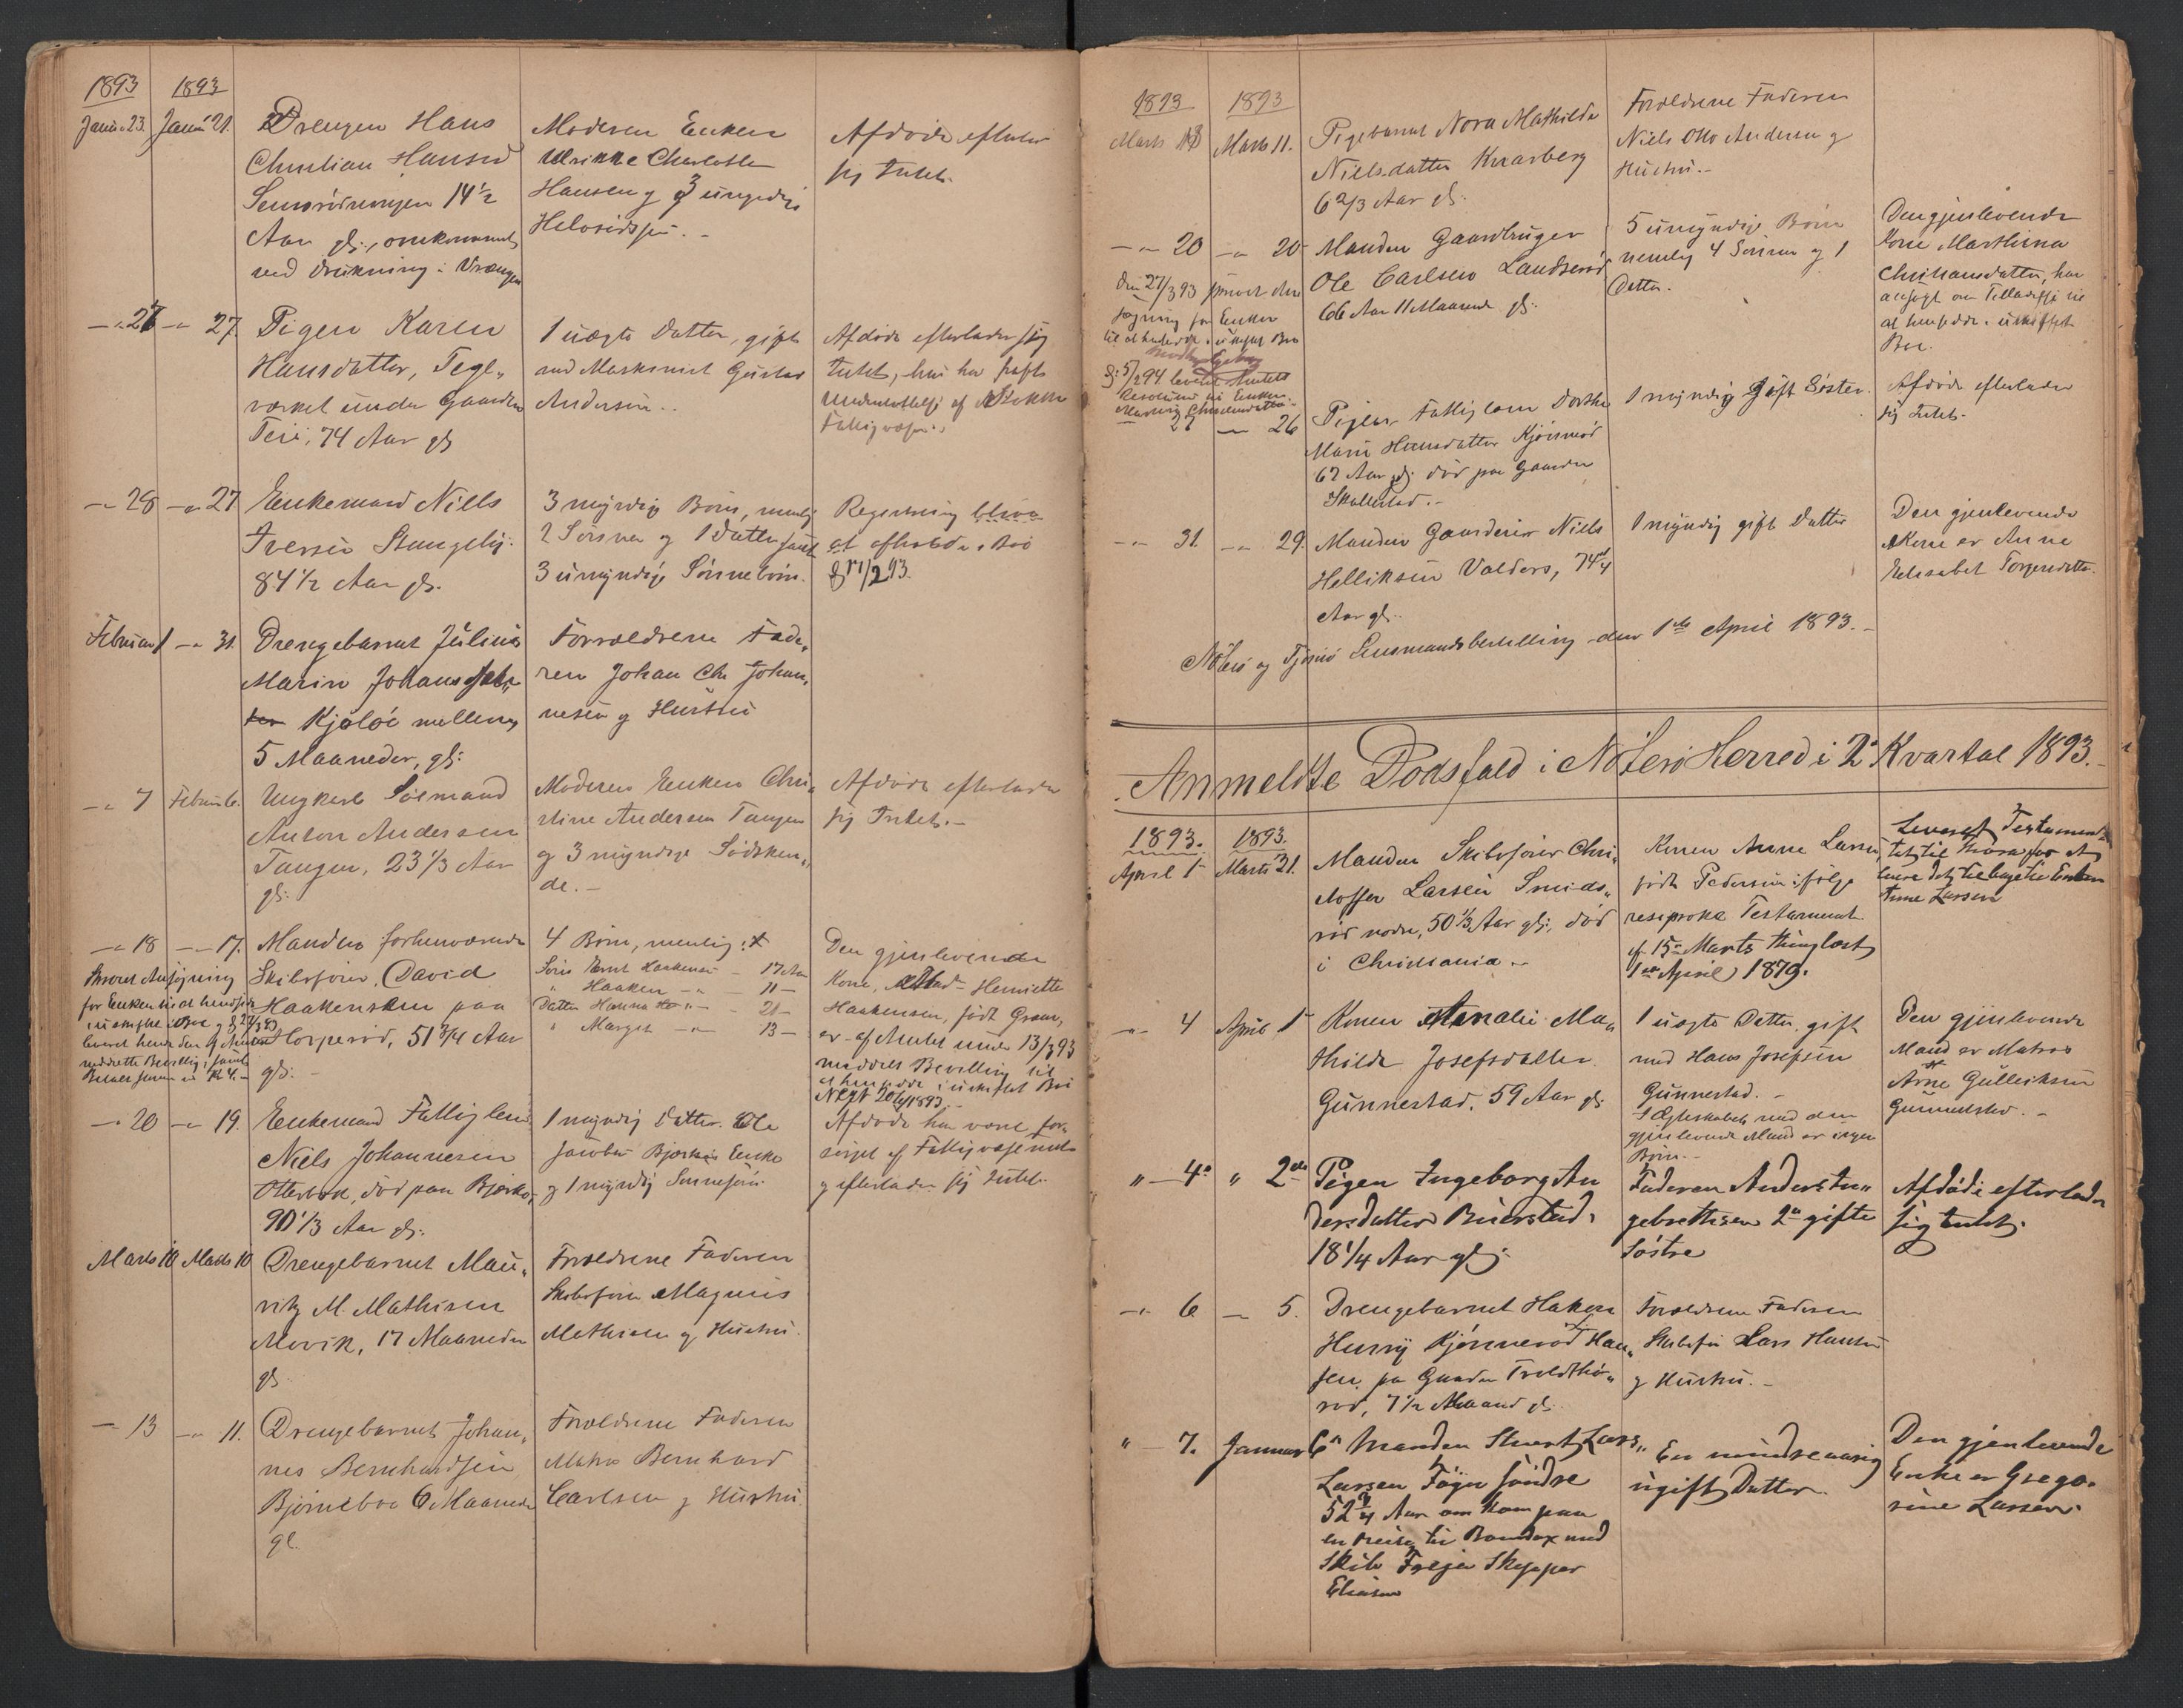 1893 1893
Janu. 23. Janu 21. Drengen Hans
Christian Hansen
14 1/2
Aar gl., omkommet
ved Drukning i Vrængen
Moderen Enken
Ulrikke Charlotte
Hansen og 3 umyndige
Helsødskj.
Afdøde efterlader
sig Intet.
27 27. Pigen Karen
Hansdatter, Tegl„
værket under Gaarden
Teie, 74 Aar gl
1 uægte Datter, gift
med Maskinist Gustav
Andersen.
Afdøde efterlader sig
Intet, hun har havt
Understøttelse af Stokke
Fattigvæsen.
28 27 Enkemand Niels
Iversen Stangeby
84 1/2 Aar gl.
3 myndige Børn, nemlig
2 Sønner og 1 Datter samt
3 umyndige Sønnebørn.
Registrering blive
at afholde i Boe
17/2 93.
Februar 1 31. Drengebarnet Julius
Marin Johansen
Kjøløe mellem
5 Maaneder, gl:
Forældrene Fade„
ren Johan Chr Johan„
nesen og Hustru
7 Februar 6. Ungkarl Sømand
Anton Andersen
Tangen, 23 1/3 Aar
gl:
Moderen Enken Chri„
stine Andersen Tangen
og 3 myndige Sødsken„
de.
Afdøde efterlader
sig Intet.
18 17. Manden forhenværende
Skibsfører David
Haakensen paa
Torperød, 51 3/4 Aar
gl:
Ansøgning
for Enken til at hensidde
i uskiftet Boe
4 Børn, nemlig:
Søn Bernt Haakensen 17 Aar
" Haaken 11
Datter Hanna 21
" Margit 13
Den gjenlevende
Kone, Henriette
Haakensen, født Gram,
er af Amtet under 13/3 93
meddelt Bevilling til
at hensidde i uskiftet Bo
20 19. Enkemand Fattiglem
Niels Johannesen
Otterbæk, død paa Bjerke,
90 1/3 Aar gl.
1 myndig Datter. Ole
Jacobsen Bjerkes Enke
og 1 myndig Sønnesøn.
Afdøde har været for„
sørget af Fattigvæsenet
og efterlader sig Intet.
Marts 10 Marts 10 Drengebarnet Mau„
ritz M. Mathisen
Movik, 17 Maaneder
gl.
Forældrene Faderen
Skibsfører Magnus
Mathisen og Hustru.
13 11. Drengebarnet Johan„
nes Bernhardsen
Bjørnebo 6 Maaneder
gl.
Forældrene Faderen
Matros Bernhard
Carlsen og Hustru
1893 1893
Marts 13 Marts 11. Pigebarnet Nora Mathilde
Nielsdatter Knarberg
6 2/3 Aar gl.
Forældrene Faderen
Niels Otto Andersen og
Hustru.
20 20 Manden Gaardbruger
Ole Carlsen Landserød
66 Aar 11 Maaned gl.
5 umyndige Børn
nemlig 4 Sønner og 1
Datter.
Den gjenlevende
Kone Marthina
Christiansdatter, har
ansøgt om Tilladelse til
at hensidde i uskiftet
Boe.
Den 27/3 93
søgning for Enken
til at hensidde i uskiftet Bo
5/2 94
27 26 Pigen, Fattiglem Dorthe
Marie Hansdatter Kjønnerød
67 Aar gl. død paa Gaarden
Skallestad.
1 myndig gift Søster.
Afdøde efterlader
sig Intet.
31. 29. Manden Gaardeier Niels
Helliksen Valders, 74 1/4
Aar gl.
1 myndig gift Datter
Den gjenlevende
Kone er Anne
Elisabet Torgersdatter.
Nøterø og Tjømø Lensmandsbestilling den 1ste April 1893.
Anmeldte Dødsfald i Nøterø Herred i 2 Kvartal 1893.
1893. 1893.
April 1 Marts 31. Manden Skibsfører Chri„
stoffer Larsen Smids„
rød nedre, 50 1/3 Aar gl:, død
i Christiania.
Konen Anne Larsen,
født Pedersen ifølge
resiproke Testament
af 15de Marts thinglæst
1ste April 1879.
Leveret Testamen„
tet til
Enken
Anne Larsen
4 April 1 Konen Amalie Ma„
thilde Josefsdatter
Gunnestad, 59 Aar gl:
1 uægte Datter, gift
med Hans Josefsen
Gunnestad.
I Ægteskabet med den
gjenlevende Mand er ingen
Børn.
Den gjenlevende
Mand er Matros
Arne Gulliksen
Gunnestad.
" 4. " 2de Pigen Ingeborg An
dersdatter Buerstad,
18 1/4 Aar gl.
Faderen Anders In„
gebretsen 2 gifte
Søstre
Afdøde efterlader
sig Intet.
6 5. Drengebarnet Hakon
Harry Kjønnerød Han„
sen, paa Gaarden Troldthø„
rød, 7 1/2 Maaned gl:
Forældrene Faderen
Skibsfører Lars Hansen
og Hustru.
" 7. Januar 6 Manden Lars„
Larsen Føyn søndre
52 3/4 Aar omkom paa
en Reise til Bordox med
Skib Freja Skipper
Eliasen
En mindreaarig
ugift Datter.
Den gjenlevende
Enke er Grego„
rine Larsen.